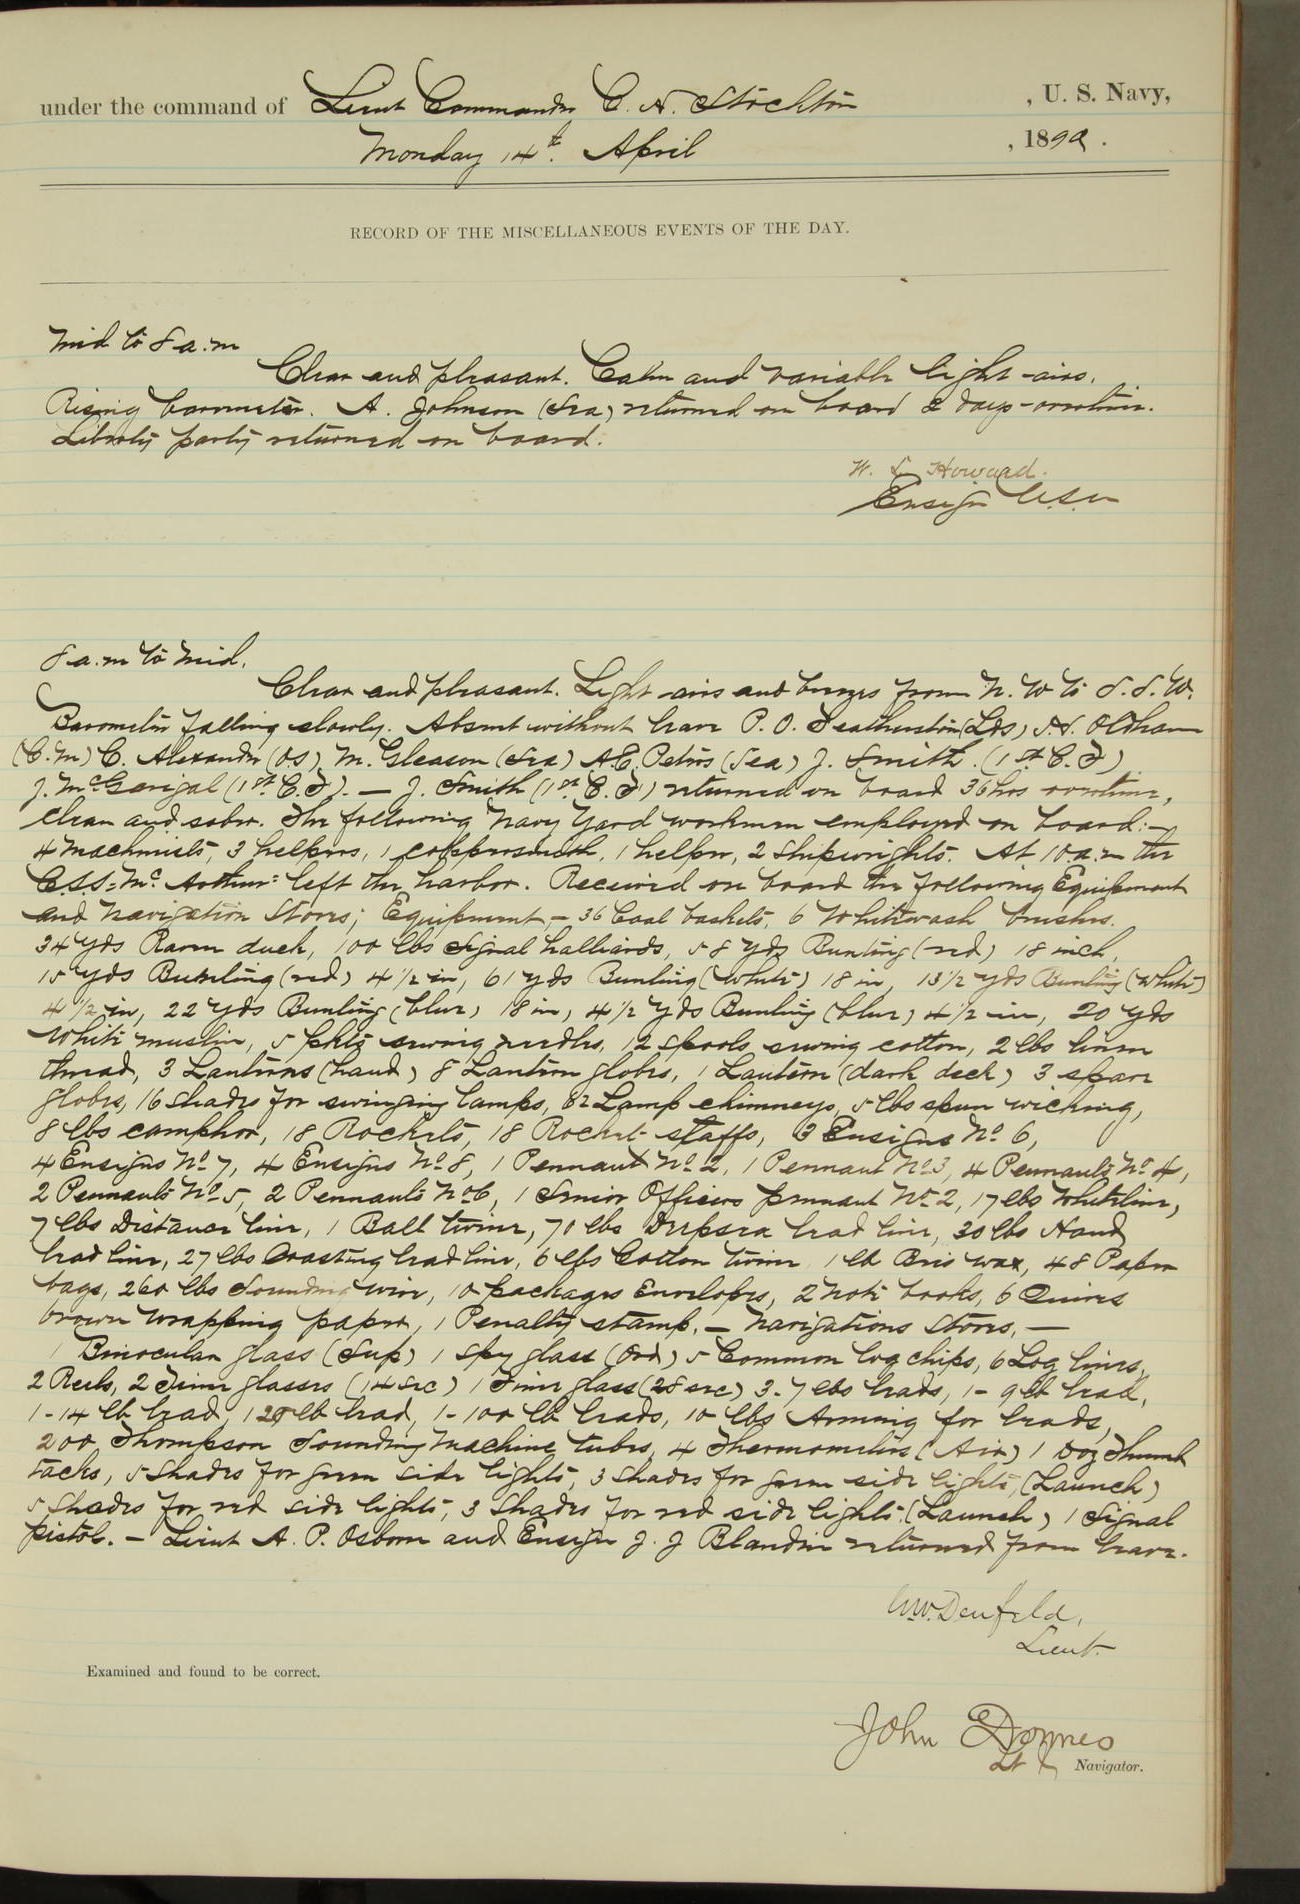 under the command of Lieut Commander C. H. Stockton , U. S. Navy,
Monday 14th. April , 1890.
RECORD OF THE MISCELLANEOUS EVENTS OF THE DAY.
Mid to 8 a.m
Clear and pleasant. Calm and variable light airs.
Rising barometer. A. Johnson (Sea) returned on board 2 days overtime.
Liberty party returned on board.
W. L. Howard.
Ensign U.S.N
8 a.m to Mid.
Clear and pleasant. Light airs and breezes from N. W to S. S. W.
Barometer falling slowly. Absent without leave P. O. Featherston (Lds) N. Oldham
(C.M) C. Alexander (OS) M. Gleason (Sea) A.C. Peters (Sea) J. Smith. (1st C. F)
J. McGarigal (1st C.F). — J. Smith (1st C. F) returned on board 36 hrs overtime,
clean and sober. The following Navy Yard workmen employed on board:—
4 Machinists, 3 helpers, 1 coppersmith, 1 helper, 2 Shipwrights. At 10 a.m the
C.S.S. "Mc Arthur" left the harbor. Received on board the following Equipment
and Navigation Stores; Equipment,— 36 Coal baskets, 6 Whitewash brushes.
34 yds Raven duck, 100 lbs Signal halliards, 58 yds Bunting (red) 18 inch,
15 yds Bunting (red) 4 1/2 in, 61 yds Bunting (white) 18 in, 13 1/2 yds Bunting (white)
4 1/2 in, 22 yds Bunting (blue) 18 in, 4 1/2 yds Bunting (blue) 4 1/2 in, 20 yds
White muslin, 5 pkts sewing needles, 12 spools sewing cotton, 2 lbs linen
thread, 3 Lanterns (hand) 8 Lantern globes, 1 Lantern (dark deck) 3 spare
globes, 16 shades for swinging lamps, 82 Lamp chimneys, 5 lbs spun wicking,
8 lbs camphor, 18 Rockets, 18 Rocket staffs, 3 Ensigns No. 6,
4 Ensigns No. 7, 4 Ensigns No. 8, 1 Pennant No. 2, 1 Pennant No. 3, 4 Pennants No. 4,
2 Pennants No. 5, 2 Pennants No. 6, 1 Senior Officers pennant No. 2, 17 lbs Whiteline,
7 lbs Distance line, 1 Ball twine, 70 lbs Deepsea lead line, 30 lbs Hand
lead line, 27 lbs Coasting lead line, 6 lbs Cotton twine 1 lb Bees wax, 48 Paper
bags, 260 lbs Sounding wire, 10 packages Envelopes, 2 note books, 6 Quires
brown wrapping paper, 1 Penalty stamp.— Navigations Stores.—
1 Binocular glass (Sup) 1 Spy glass (Ord) 5 Common log chips, 6 Log lines,
2 Reels, 2 Time glasses (14 sec) 1 Time glass (28 sec) 3- 7 lbs leads, 1- 9 lb lead,
1-14 lb lead, 1 20 lb lead, 1-100 lb leads, 10 lbs Arming for leads,
200 Thompson Sounding Machine tubes, 4 Thermometers (Air) 1 Doz Thumb
tacks, 5 Shades for green side lights, 3 Shades for green side lights, (Launch)
5 Shades for red side lights, 3 Shades for red side lights, (Launch) 1 Signal
pistol. — Lieut A. P. Osborn and Ensign J. J Blandin returned from leave.
Denfeld,
Lieut.
Examined and found to be correct.
John Downes
Lt Navigator.